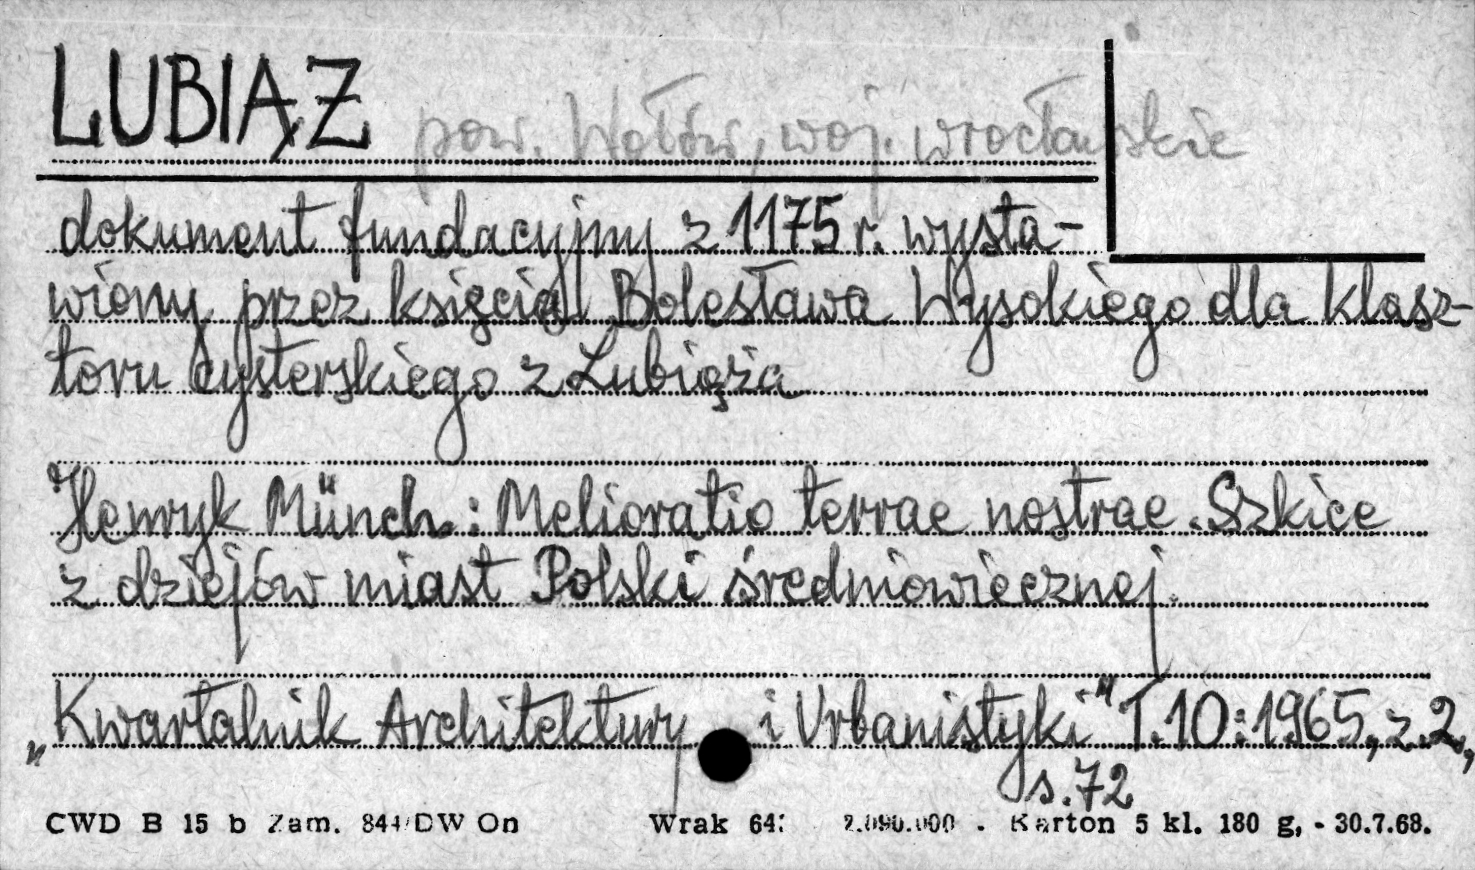 LUBIĄŻ pow. Wołów, woj. wrocławskie
dokument fundacyjny z 1175 r. wysta-
wiony przez księcia Bolesława Wysokiego dla klasz-
toru cysterskiego z Lubiąża
Henryk Münch : Melioratio terrae nostrae. Szkice
z dziejów miast Polski średniowiecznej.
„Kwartalnik Architektury i Urbanistyki" T.10:1965, z.2,
s.72
CWD B 15 b Zam. 844/DW On Wrak 64: 2.090.000 . Karton 5 kl. 180 g, - 30.7.68.